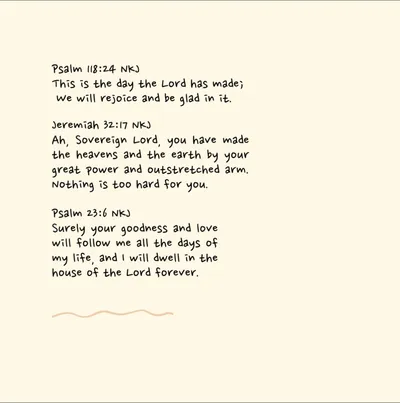 Psalm 118:24 NKJ
This is the day the Lord has made;
We will rejoice and be glad in it.
Jeremiah 32:17 NKJ
Ah, Sovereign Lord, you have made
the heavens and the earth by your
great power and outstretched arm.
Nothing is too hard for you.
Psalm 23:6 NKJ
Surely your goodness and love
will follow me all the days of
my life, and I will dwell in the
house of the Lord forever.